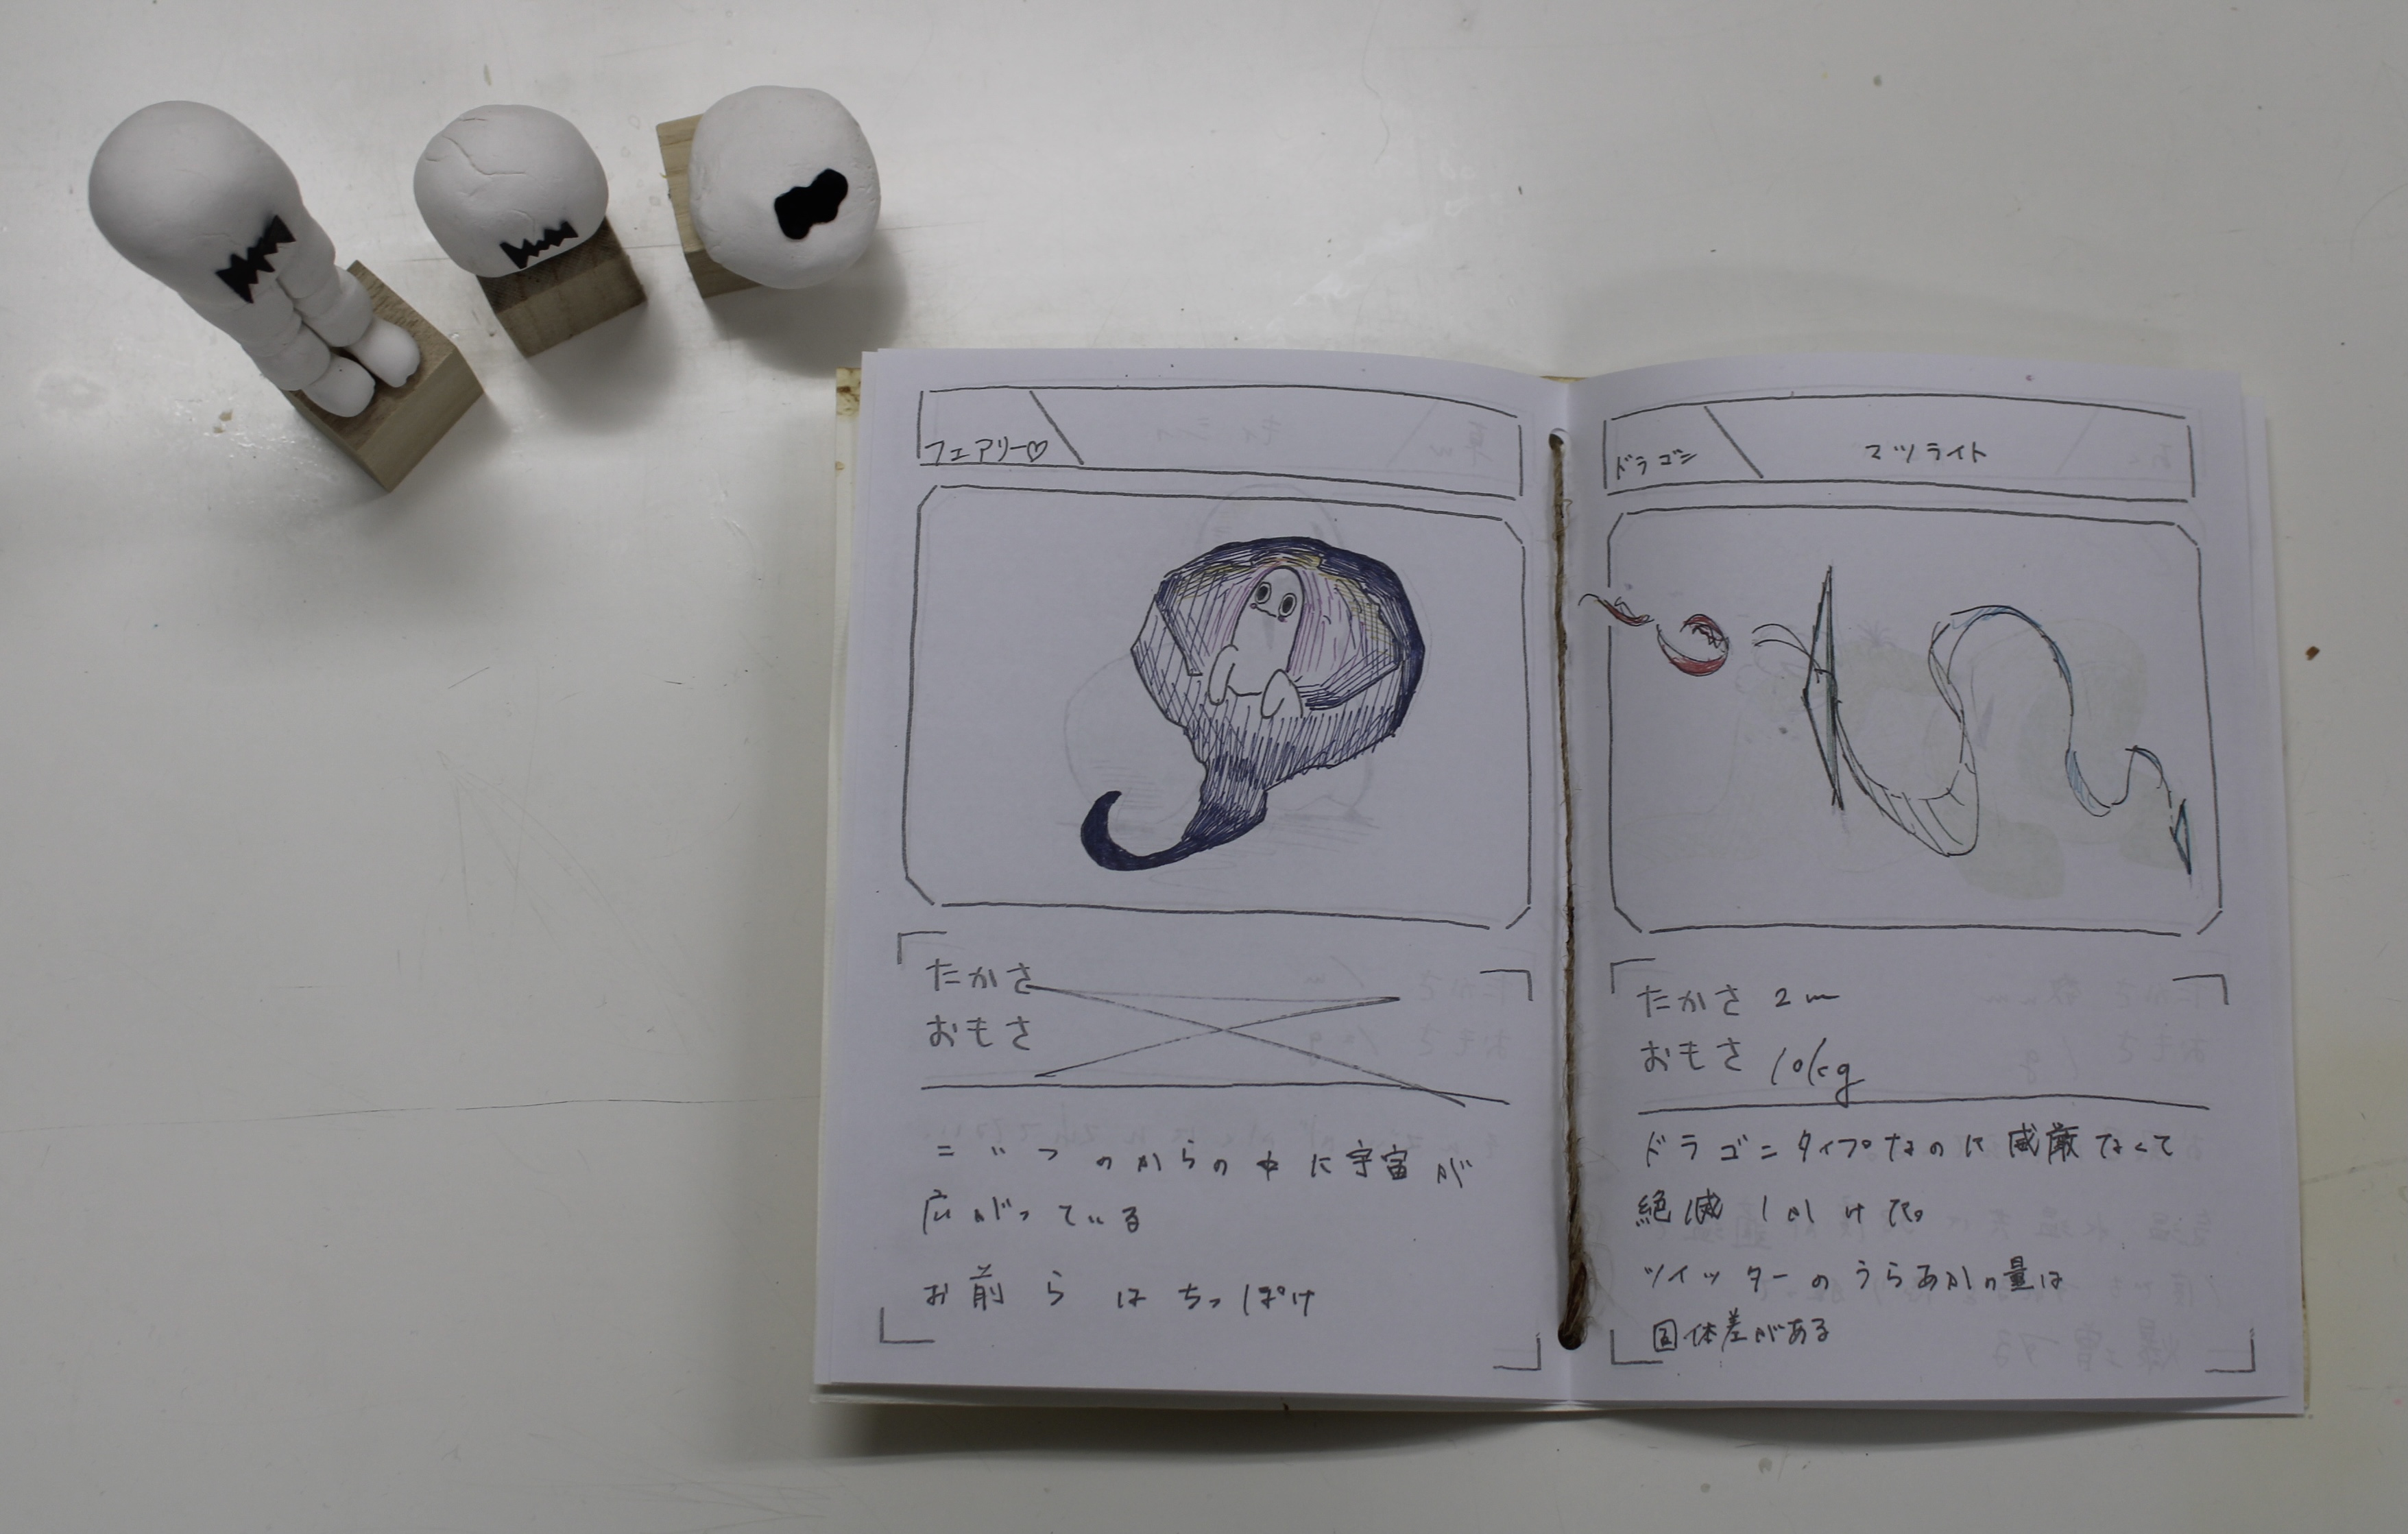 フェアリー♡
たかさ
おもさ
こいつのからの中に宇宙が
広がっている
お前らはちっぽけ
ドラゴン
マツライト
たかさ 2m
おもさ 10kg
ドラゴンタイプなのに威厳なくて
絶滅しかけた。
ツイッターのうらあかの量は
固体差がある